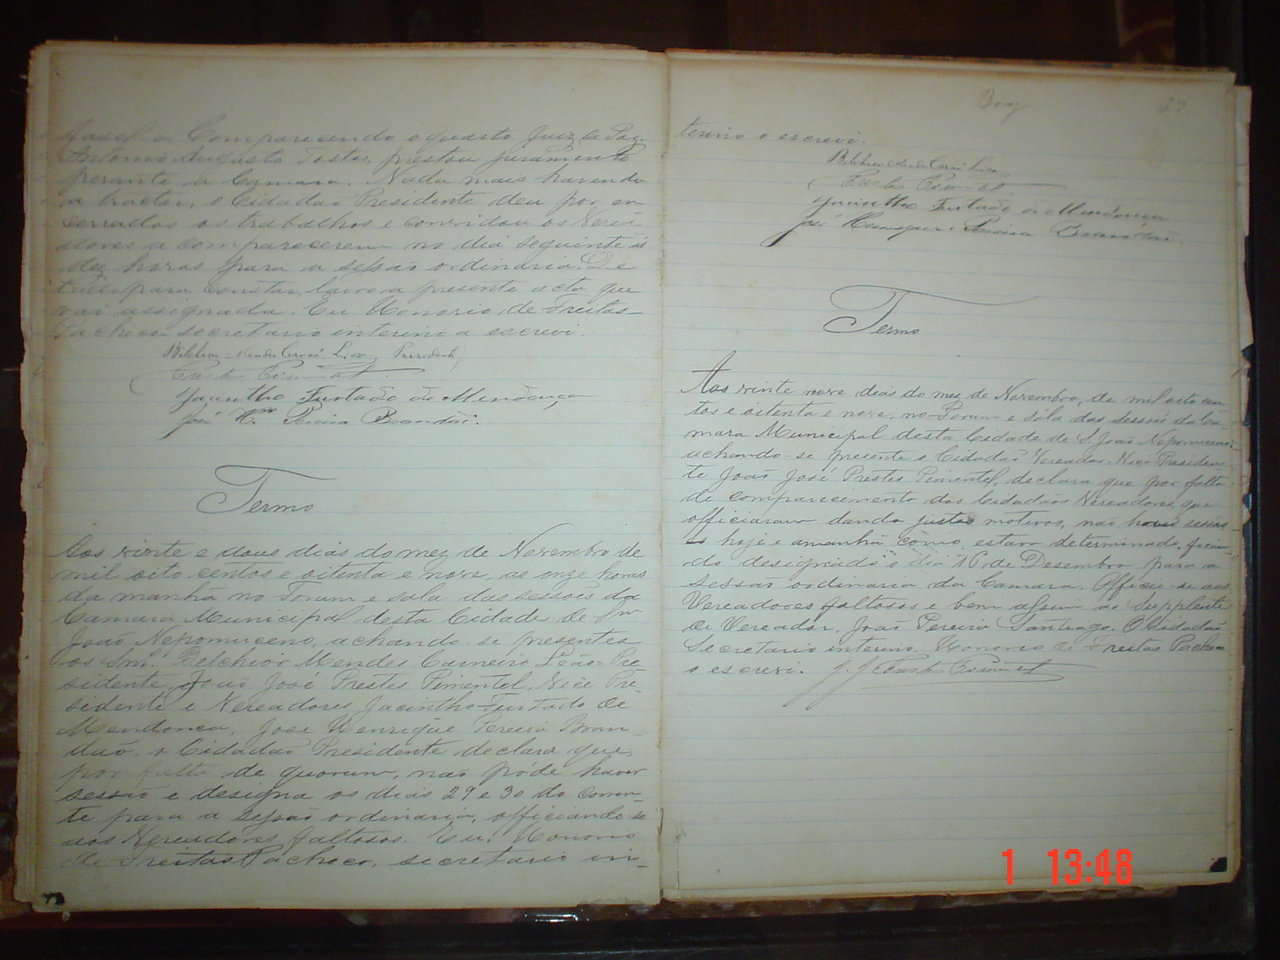 Comparecendo o quarto Juiz de Paz
Antonio Augusto Tostes, prestou juramento
perante a Camara. Nada mais havendo
a tractar, o Cidadão Presidente deu por en
cerrados os trabalhos e convidou os Verea-
dores a comparecerem no dia seguinte ás
dez horas para a sessão ordinaria. De
tudo para constar, lavro a presente acta que
vai assignada. Eu Honorio de Freitas
Pacheco secretario interino a escrevi.
Belchior Mendes Carnrº Leão, Presidente
Preste Pimentel
Jacintho Furtado de Mendonça
José H. Pereira Brandão.
Termo
Aos vinte e dous dias do mez de Novembro de
mil oito centos e oitenta e nove, as onze horas
da manhã no Forum e sala das sessões da
Camara Municipal desta Cidade de Sm
João Nepomuceno, achando-se presentes
os Snrs. Belchior Mendes Carneiro Leão Pre-
sidente, João José Prestes Pimentel, Vice Pre-
sidente e Vereadores Jacintho Furtado de
Mendonca, José Henrique Pereira Bran-
dão. o Cidadão Presidente declara que,
por falta de quorum, não póde haver
sessão e designa os dias 29 e 30 do corren-
te para a sessão ordinaria, officiando-se
aos Vereadores faltosos. Eu, Honorio
de Freitas Pacheco, secretario in-
57
terino o escrevi.
Belchior Mendes Carnrº Leão
Preste Pimentel
Jacintho Furtado de Mendonça
José Henrique Pereira Brandão.
Termo
Aos vinte nove dias do mez de Novembro, de mil oito cen-
tos e oitenta e nove, no Forum e sala das sessões da Ca-
mara Municipal desta Cidade de S. João Nepomuceno,
achando-se presente o Cidadão Vereador Vice Presiden-
te João José Prestes Pimentel, declara que por falta
de comparecimento dos Cidadãos Vereadores, que
officiaram dando justos motivos, não houve sessão
hoje e amanhã como estava determinado, fican-
do designado o dia 16 de Desembro para a
sessão ordinaria da Camara. Officie-se aos
Vereadores faltosos e bem assim ao Supplente
de Vereador, João Pereira Santiago. O Cidadão
Secretario interino. Honorio de Freitas Pacheco
o escrevi. J. J. Preste Pimentel
1 13:48